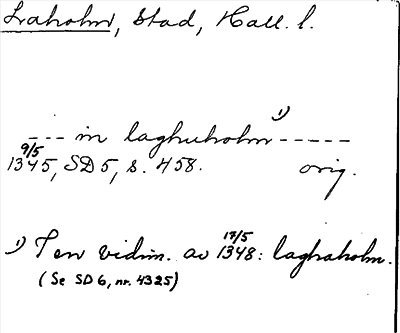 Laholm, Stad, Hall. l.
--- in laghuholm ¹⁾ -----
9/5 1345, SD 5, s. 458. orig.
¹⁾ I en vidim. av 17/5 1348: laghaholm.
(Se SD 6, nr. 4325)